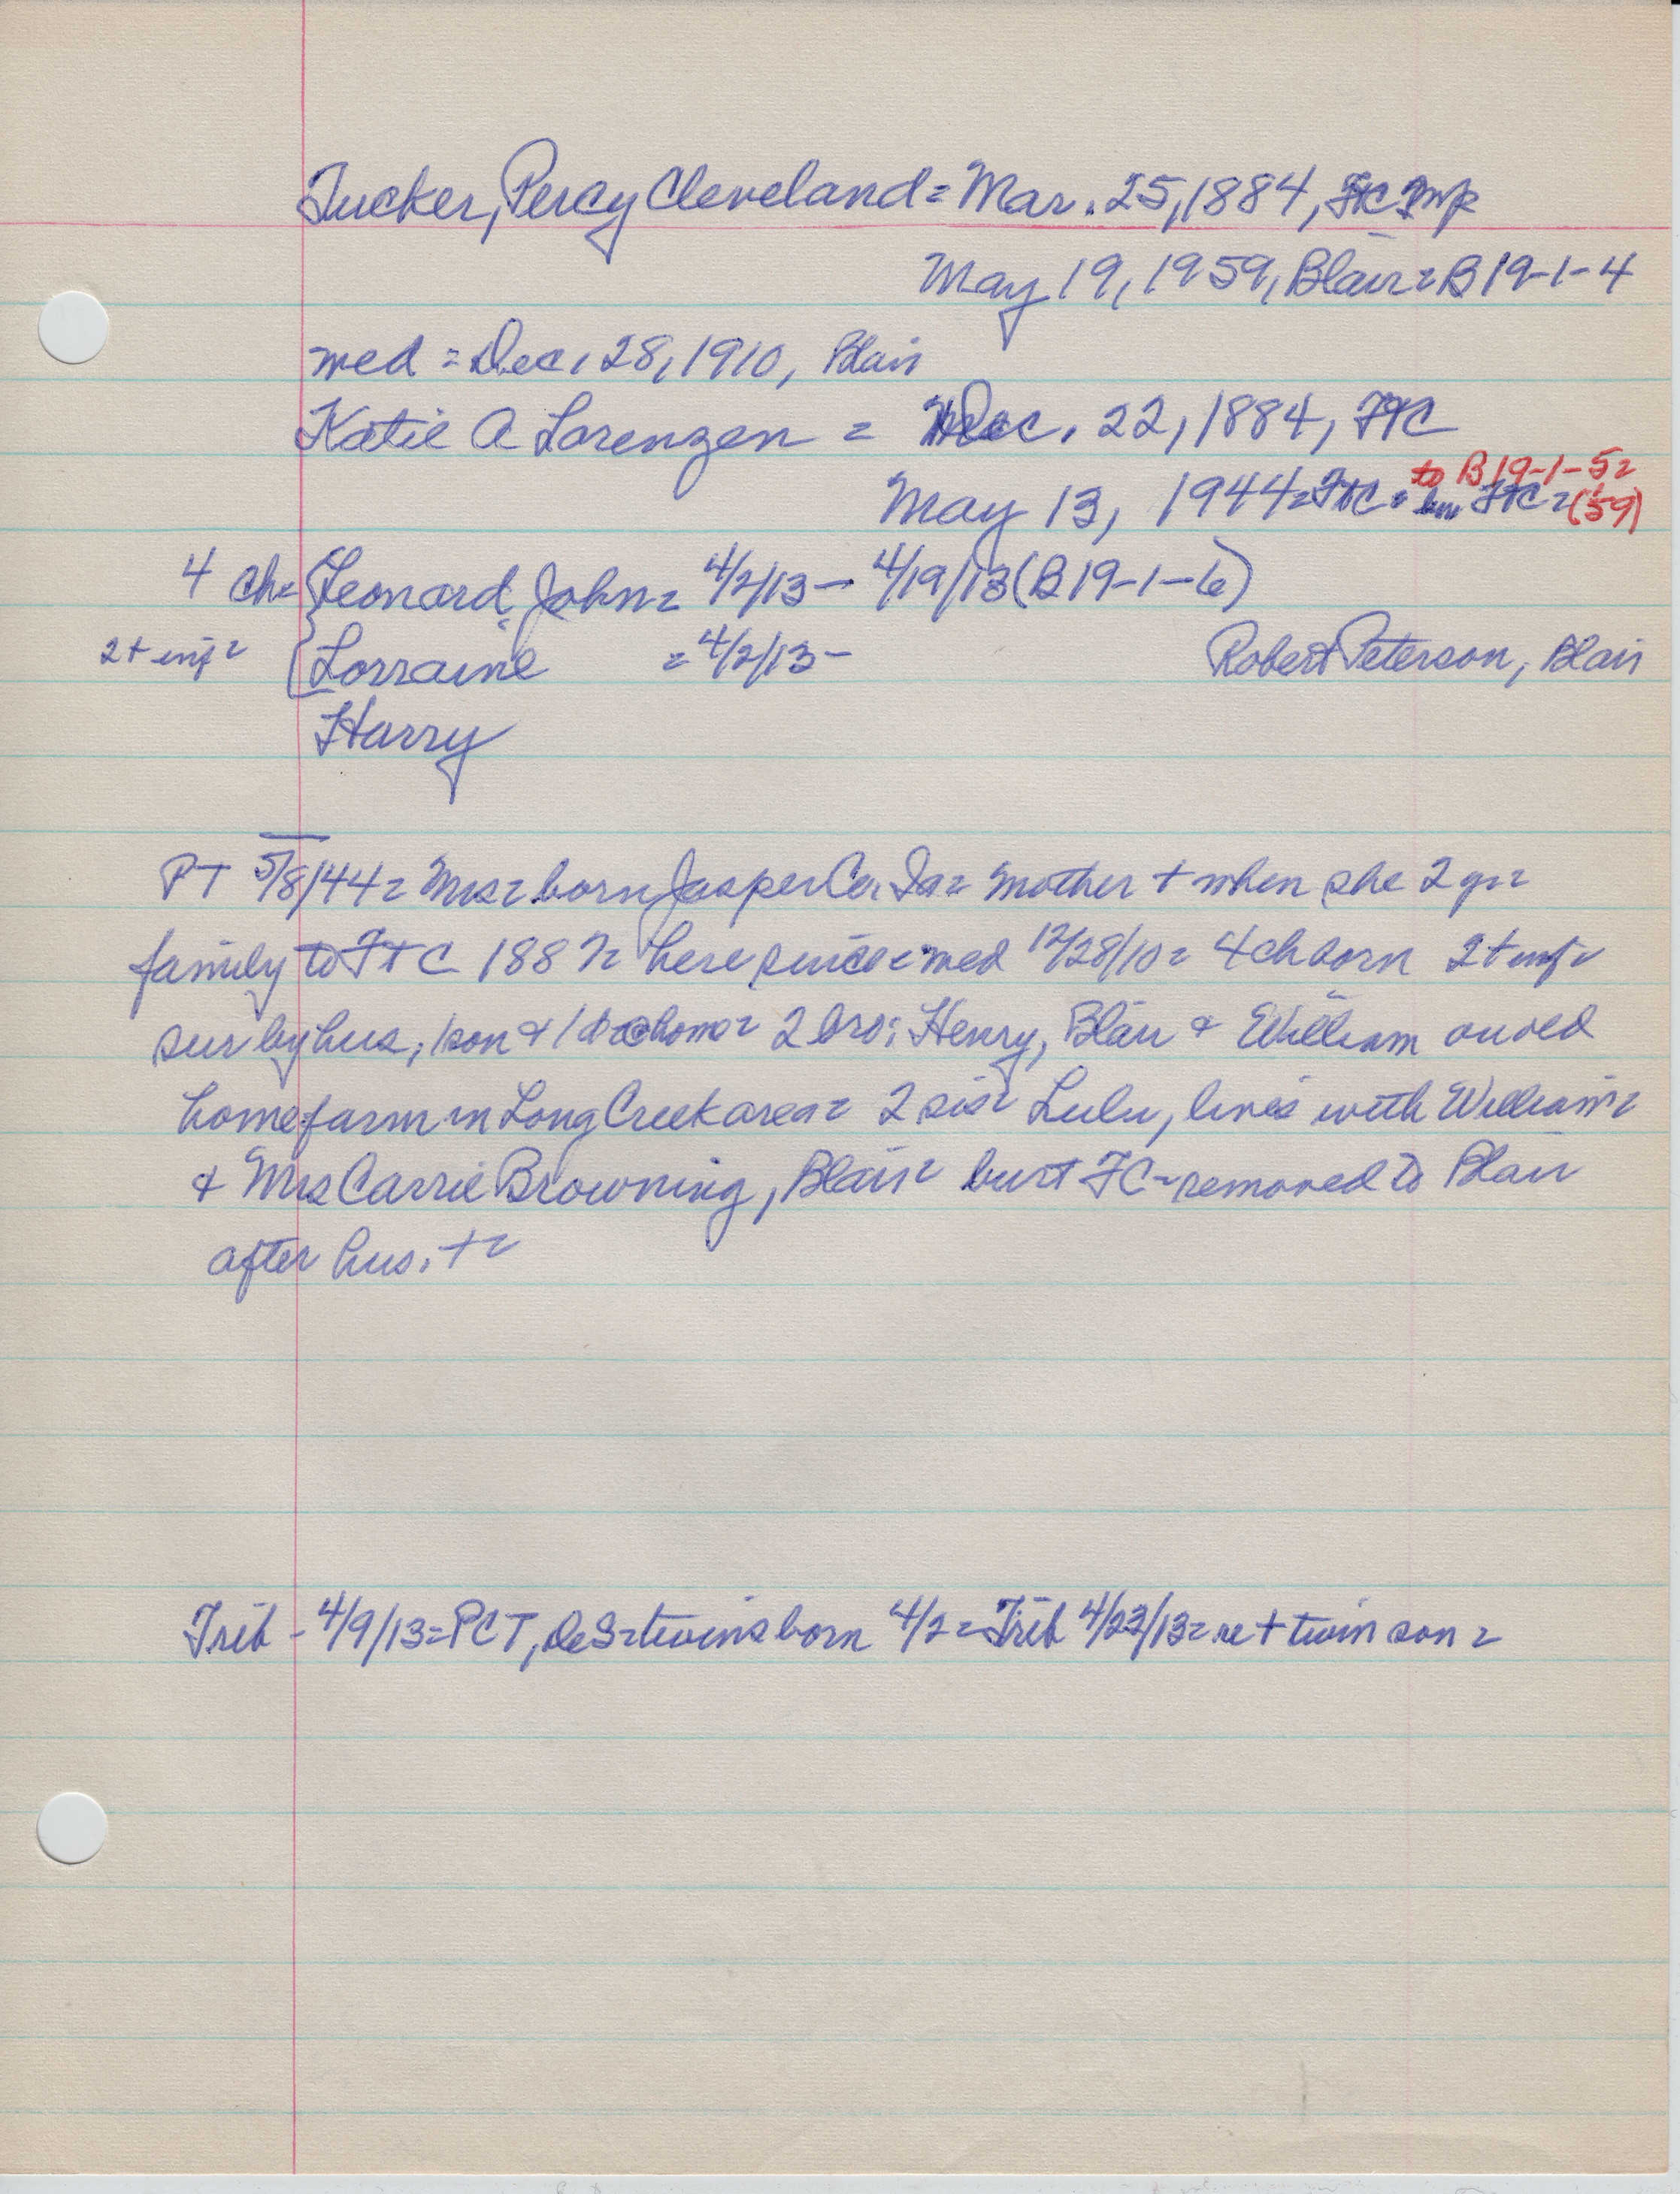 Tucker, Percy Cleveland = Mar. 25, 1884, FtC Twp
May 19, 1959, Blair = B 19-1-4
med = Dec. 28, 1910, Blair
Katie A Lorenzen = Dec. 22, 1884, FtC
to B 19-1-5=
May 13, 1944 = FtC = FtC = (59)
4 ch = Leonard John = 4/2/13 - 4/19/13 (B 19-1-6)
2 + inf = Lorraine = 4/2/13 - Robert Peterson, Blair
Harry
PT 5/8/44 = Mrs = born Jasper Co. Ia = mother + when she 2 yr =
family to Ft C 1887 = here since = med 12/28/10 = 4 ch born 2 + inf =
sur by hus, 1 son & 1 d @ home = 2 bro; Henry, Blair & William on old
home farm in Long Creek area = 2 sis = Lulu, lives with William =
& Mrs Carrie Browning, Blair = burt FC - removed to Blair
after hus. + =
Trib - 4/9/13 = PCT, DeS = twins born 4/2 = Trib 4/23/13 = re + twin son =